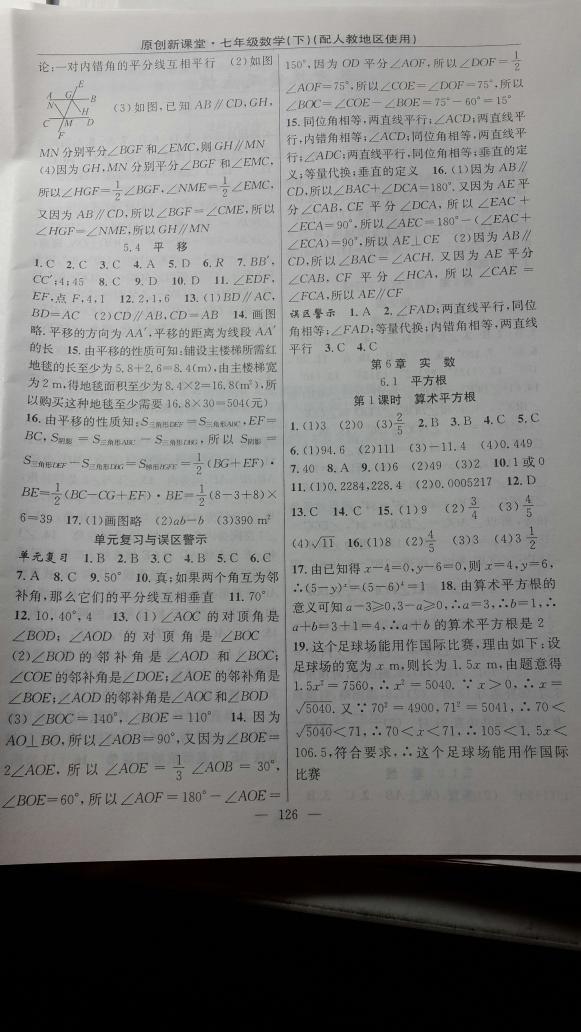 原创新课堂·七年级数学(下)(配人教地区使用)
论:一对内错角的平分线互相平行 (2)如图
E
A G B
N H
C M D
F
(3)如图,已知 AB∥CD,GH,
MN 分别平分∠BGF 和∠EMC,则 GH∥MN
(4)因为 GH,MN 分别平分∠BGF 和∠EMC,
所以∠HGF=1/2∠BGF,∠NME=1/2∠EMC,
又因为 AB∥CD,所以∠BGF=∠CME,所以
∠HGF=∠NME,所以 GH∥MN
5.4 平 移
1.C 2.C 3.C 4.A 5.D 6.R 7.BB′,
CC′;4;45 8.C 9.D 10.D 11.∠EDF,
EF,点 F,4,1 12.2,1,6 13.(1)BD∥AC,
BD=AC (2)CD∥AB,CD=AB 14.画图
略.平移的方向为 AA′,平移的距离为线段 AA′
的长 15.由平移的性质可知:铺设主楼梯所需红
地毯的长至少为 5.8+2.6=8.4(m),由主楼梯宽
为 2 m,得地毯面积至少为 8.4×2=16.8(m²),所
以购买这种地毯至少需要 16.8×30=504(元)
16.由平移的性质知:S三角形DEF=S三角形ABC,EF=
BC,S阴影=S三角形ABC-S三角形DBG,所以 S阴影=
S三角形DEF-S三角形DBG=S梯形BGFE=1/2(BG+EF)·
BE=1/2(BC-CG+EF)·BE=1/2(8-3+8)×
6=39 17.(1)画图略 (2)ab-b (3)390 m²
单元复习与误区警示
单元复习 1.B 2.B 3.C 4.B 5.C 6.C
7.A 8.C 9.50° 10.真;如果两个角互为邻
补角,那么它们的平分线互相垂直 11.70°
12.10,40°,4 13.(1)∠AOC 的对顶角是
∠BOD;∠AOD 的对顶角是∠BOC
(2)∠BOD 的邻补角是∠AOD 和∠BOC;
∠COE 的邻补角是∠DOE;∠AOE 的邻补角是
∠BOE;∠AOD 的邻补角是∠AOC 和∠BOD
(3)∠BOC=140°,∠BOE=110° 14.因为
AO⊥BO,所以∠AOB=90°,又因为∠BOE=
2∠AOE,所以∠AOE=1/3∠AOB=30°,
∠BOE=60°,所以∠AOF=180°-∠AOE=
150°,因为 OD 平分∠AOF,所以∠DOF=1/2
∠AOF=75°,所以∠COE=∠DOF=75°,所以
∠BOC=∠COE-∠BOE=75°-60°=15°
15.同位角相等,两直线平行;∠ACD;两直线平
行,内错角相等;∠ACD;同位角相等,两直线平
行;∠ADC;两直线平行,同位角相等;垂直的定
义;等量代换;垂直的定义 16.(1)因为 AB∥
CD,所以∠BAC+∠DCA=180°.又因为 AE 平
分∠CAB,CE 平分∠DCA,所以∠EAC+
∠ECA=90°,所以∠AEC=180°-(∠EAC+
∠ECA)=90°,所以 AE⊥CE (2)因为 AB∥
CD,所以∠BAC=∠ACH.又因为 AE 平分
∠CAB,CF 平分∠HCA,所以∠CAE=
∠FCA,所以 AE∥CF
误区警示 1.A 2.∠FAD;两直线平行,同位
角相等;∠FAD;等量代换;内错角相等,两直线
平行 3.C 4.C
第 6 章 实 数
6.1 平方根
第 1 课时 算术平方根
1.(1)3 (2)0 (3)2/5 2.B 3.B 4.C 5.C
6.(1)94.6 (2)111 (3)-11.4 (4)0.449
7.40 8.A 9.(1)6 (2)49 (3)2 10.1 或 0
11.(1)0.2284,228.4 (2)0.0005217 12.D
13.C 14.C 15.(1)9 (2)3/4 (3)4/5
(4)√11 16.(1)8 (2)4/5 (3)3 (4)3 1/2
17.由已知得 x-4=0,y-6=0,则 x=4,y=6,
∴(5-y)ˣ=(5-6)⁴=1 18.由算术平方根的
意义可知 a-3≥0,3-a≥0,∴a=3,∴b=1,∴
a+b=3+1=4,∴a+b 的算术平方根是 2
19.这个足球场能用作国际比赛,理由如下:设
足球场的宽为 x m,则长为 1.5x m,由题意得
1.5x²=7560,∴x²=5040.∵x>0,∴x=
√5040.又∵70²=4900,71²=5041,∴70<
√5040<71,∴70<x<71,∴105<1.5x<
106.5,符合要求,∴这个足球场能用作国际
比赛
— 126 —